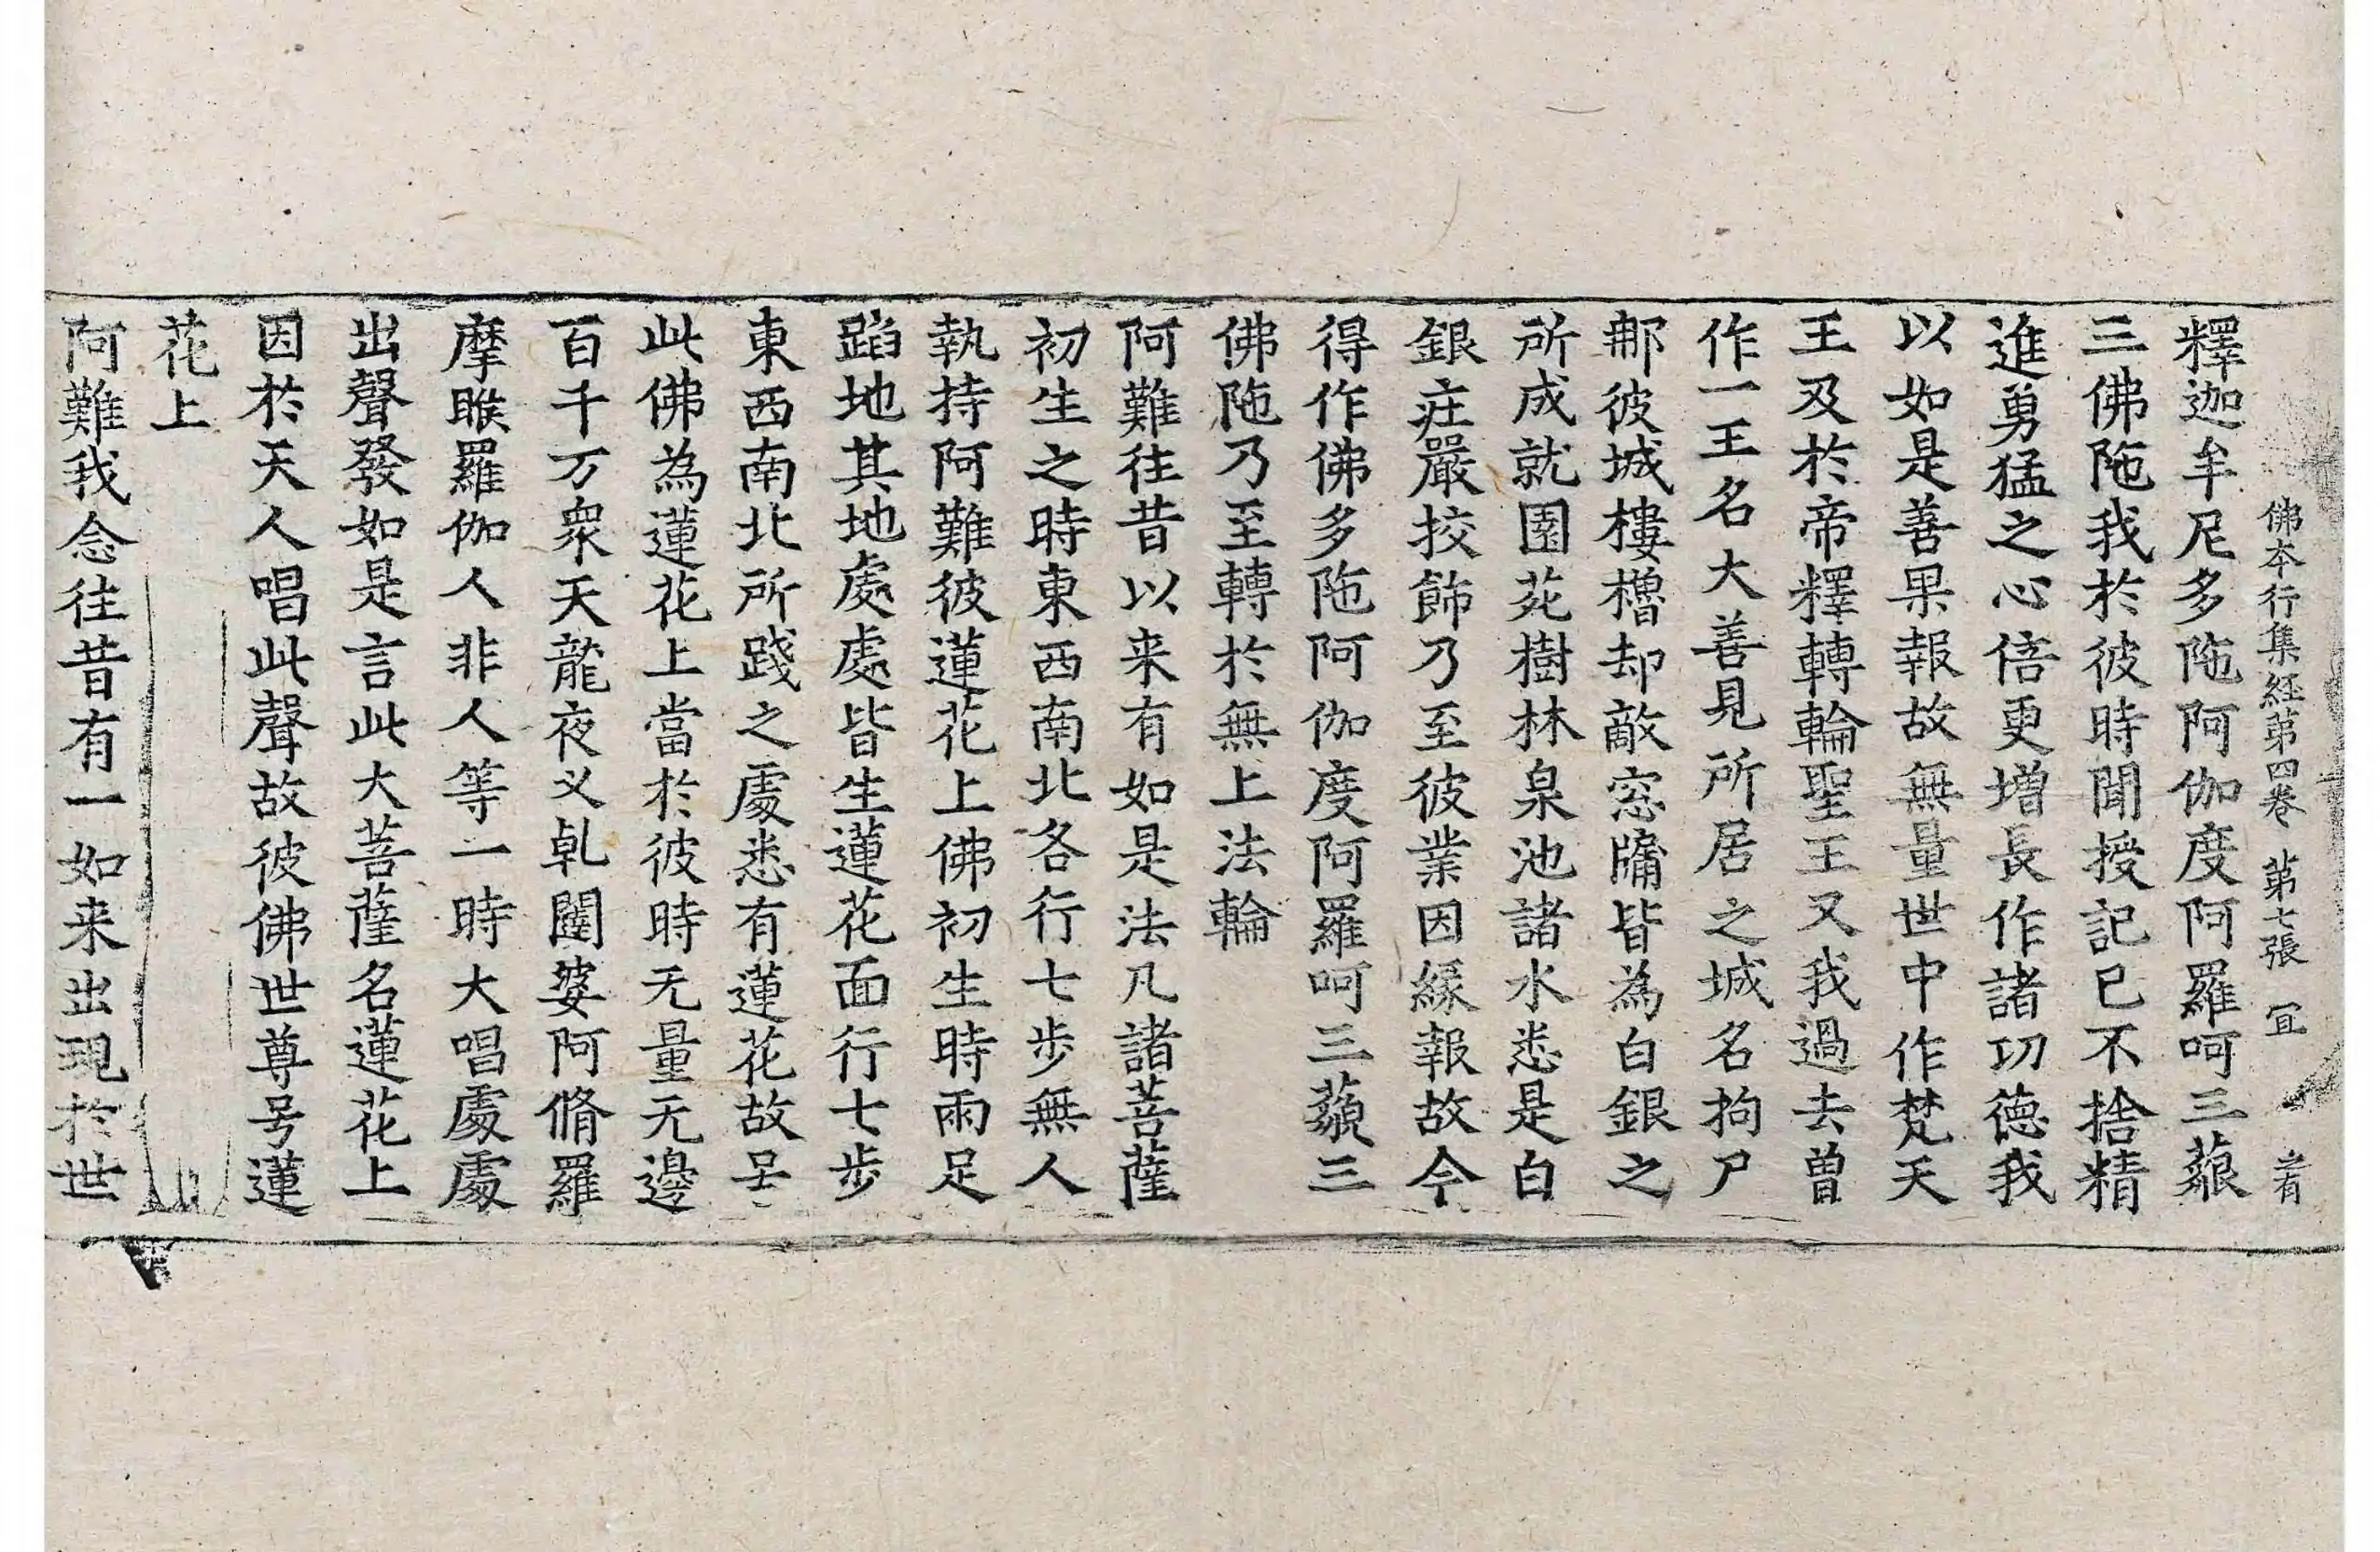 佛本行集経第四卷 第七張 冝
釋迦牟尼多陁阿伽度阿羅呵三藐
三佛陁我於彼時聞授記已不捨精
進勇猛之心倍更増長作諸功德我
以如是善果報故無量世中作梵天
王及於帝釋轉輪聖王又我過去曾
作一王名大善見所居之城名拘尸
那彼城樓櫓却敵窓牖皆為白銀之
所成就園苑樹林泉池諸水悉是白
銀庄嚴挍飾乃至彼業因緣報故今
得作佛多陁阿伽度阿羅呵三藐三
佛陁乃至轉於無上法輪
阿難往昔以来有如是法凡諸菩薩
初生之時東西南北各行七步無人
執持阿難彼蓮花上佛初生時兩足
蹈地其地處處皆生蓮花面行七步
東西南北所踐之處悉有蓮花故号
此佛為蓮花上當於彼時无量无邊
百千万衆天龍夜叉乹闥婆阿脩羅
摩睺羅伽人非人等一時大唱處處
出聲發如是言此大菩薩名蓮花上
因於天人唱此聲故彼佛世尊号蓮
花上
阿難我念往昔有一如来出現於世